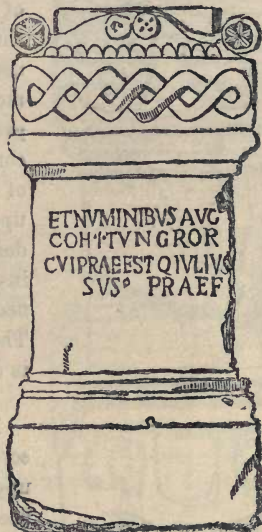 ETNVMINIBVS AVG
COH·I·TVNGROR
CVIPRAEEST Q IVLIVS
SVS° PRAEF